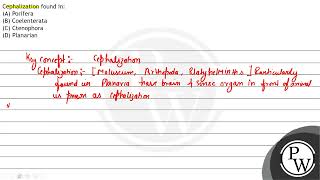 Cephalization found in:
(A) Porifera
(B) Coelenterata
(C) Ctenophora
(D) Planarian
Key concept:- Cephalization
Cephalization:- [Moluscum, Arthopoda, Platyhelminths] Particularly
found in Planaria have brain & sense organ in front of animal
is known as cephalization
PW